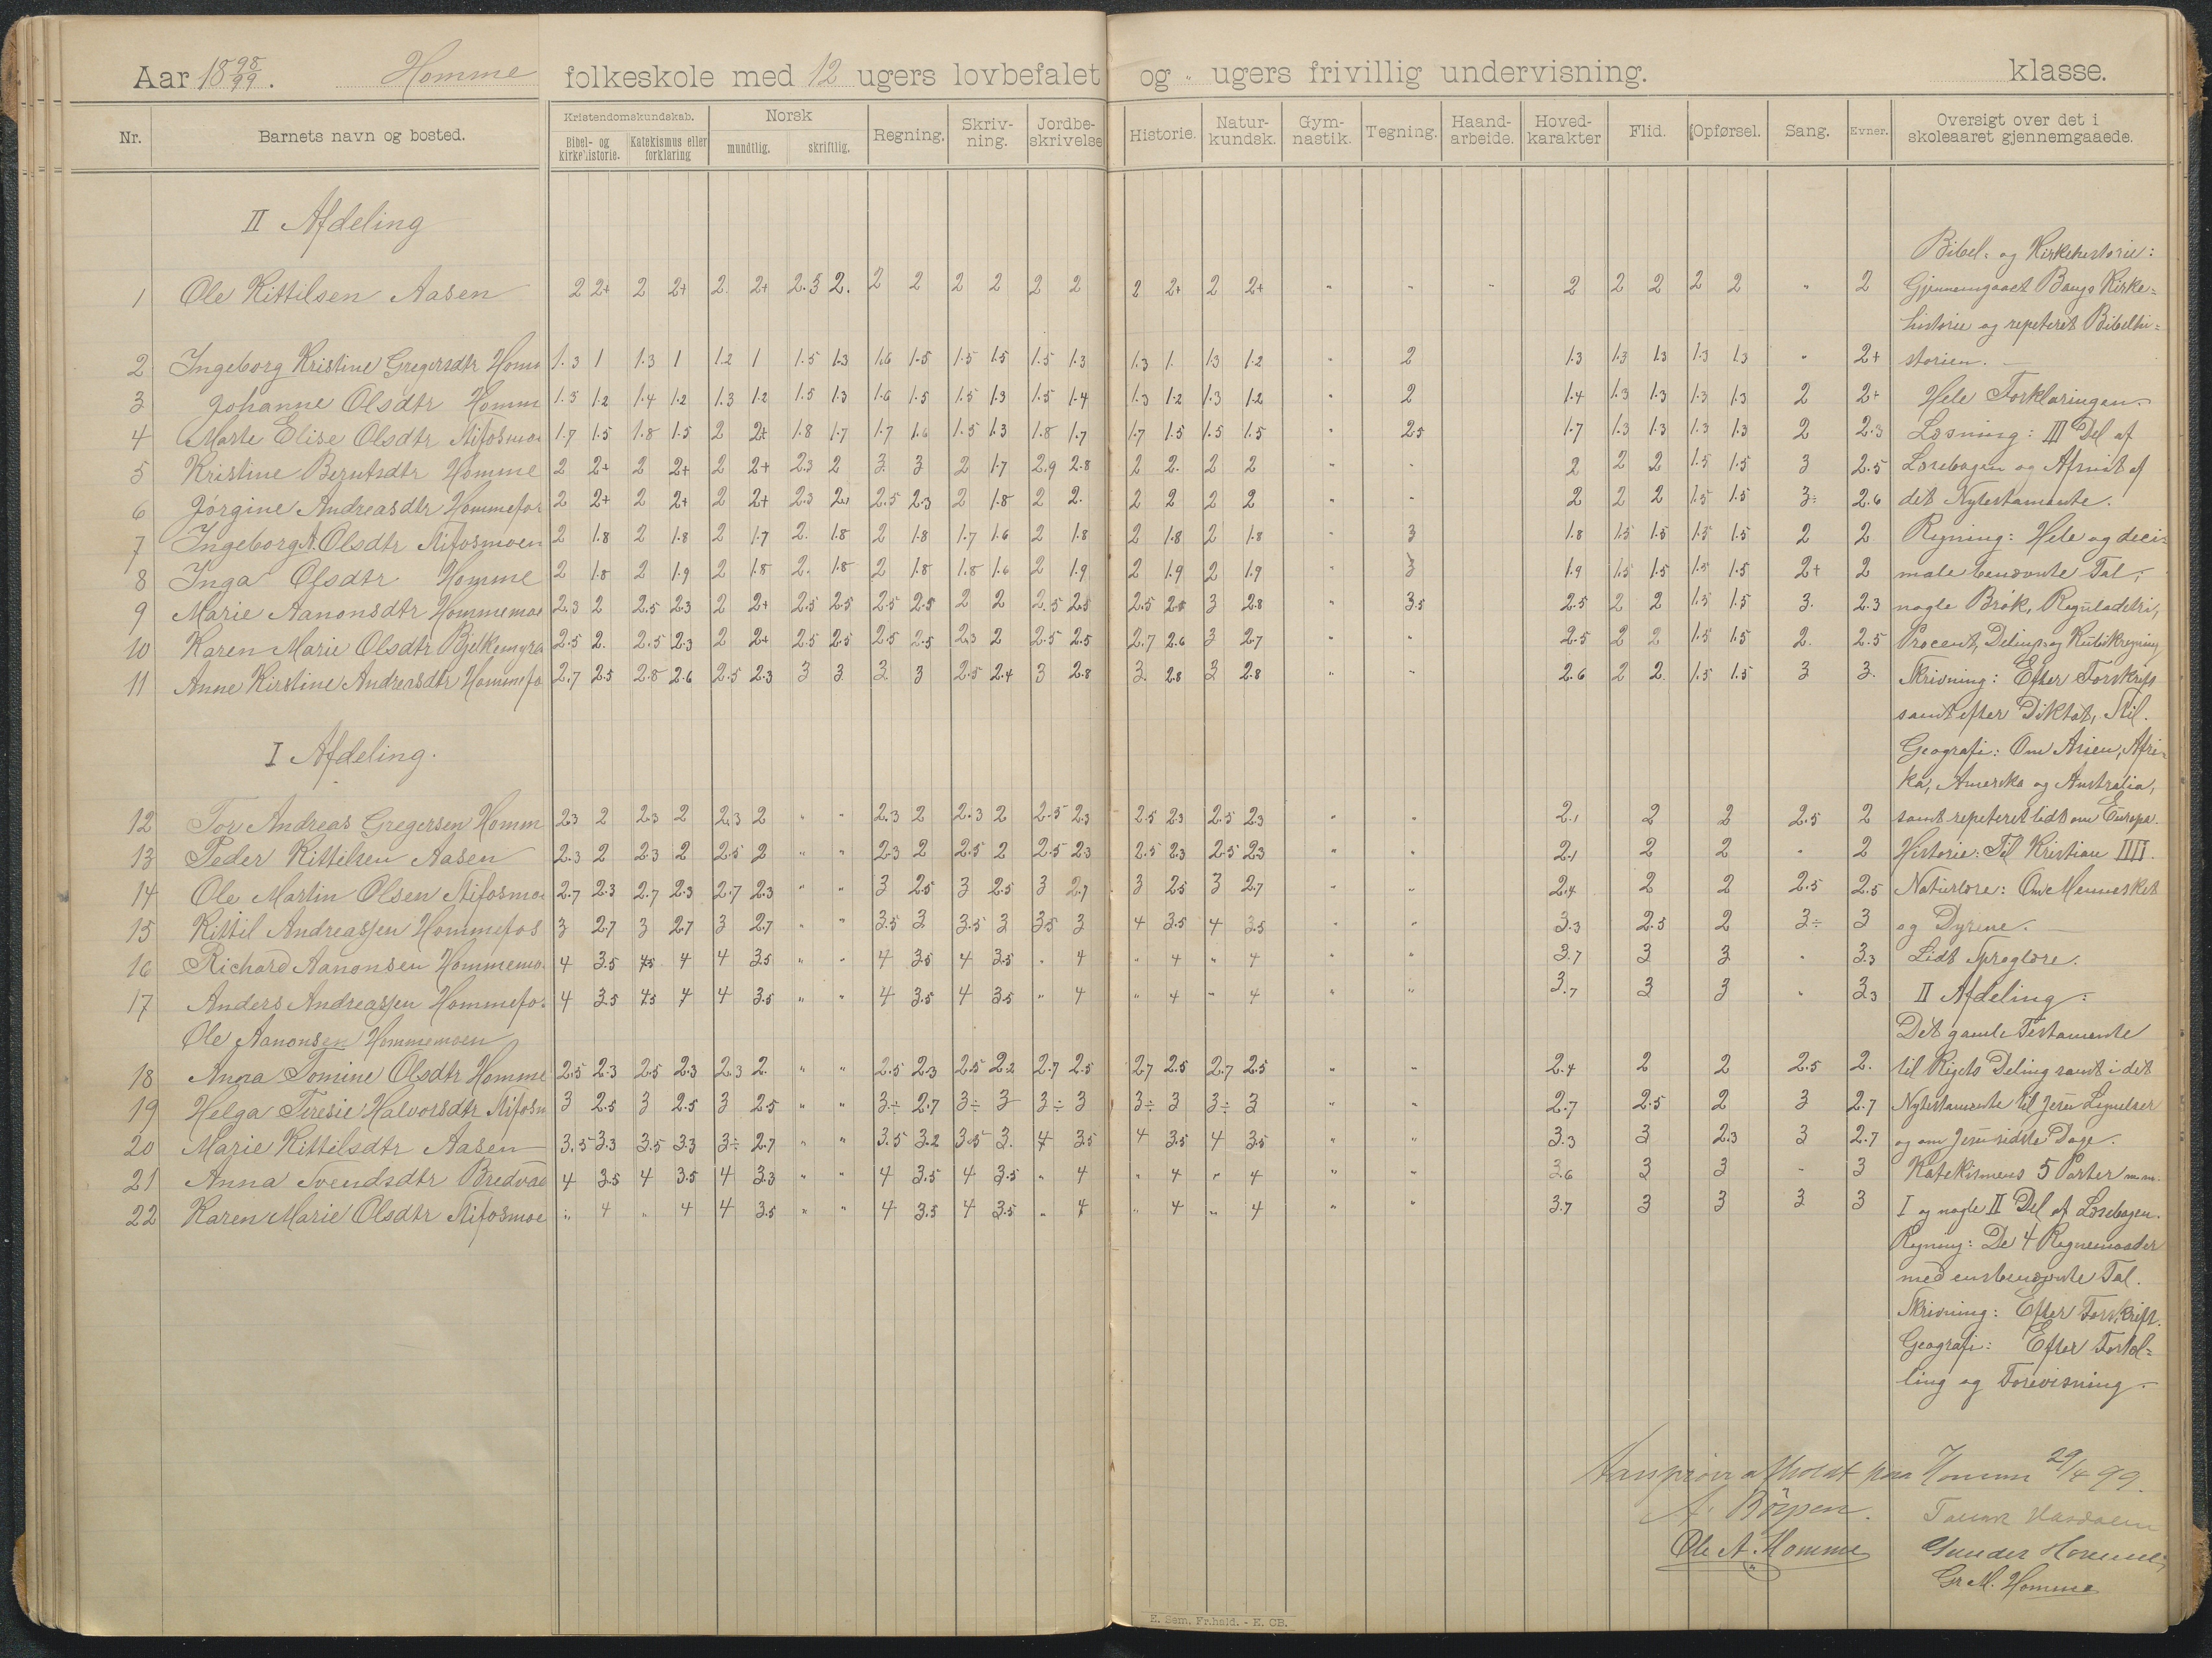 Aar 1898/99. Homme folkeskole med 12 ugers lovbefalet og " ugers frivillig undervisning. klasse.
Nr. Barnets navn og bosted. Kristendomskundskab. Bibel- og kirkehistorie. Katekismus eller forklaring Norsk mundtlig. skriftlig. Regning. Skriv-ning. Jordbe-skrivelse Historie. Natur-kundsk. Gym-nastik. Tegning. Haand-arbeide. Hoved-karakter Flid. Opførsel. Sang. Evner. Oversigt over det i skoleaaret gjennemgaaede.
II Afdeling
1 Ole Kittilsen Aasen 2 2+ 2 2+ 2 2+ 2.5 2. 2 2 2 2 2 2 2 2+ 2 2+ " " " 2 2 2 2 2 " 2
2 Ingeborg Kristine Gregersdtr Homm 1.3 1 1.3 1 1.2 1 1.5 1.3 1.6 1.5 1.5 1.5 1.5 1.3 1.3 1. 1.3 1.2 " 2 1.3 1.3 1.3 1.3 1.3 " 2+
3 Johanne Olsdtr Homm 1.5 1.2 1.4 1.2 1.3 1.2 1.5 1.3 1.6 1.5 1.5 1.3 1.5 1.4 1.3 1.2 1.3 1.2 " 2 1.4 1.3 1.3 1.3 1.3 2 2+
4 Marte Elise Olsdtr Stifosmoe 1.7 1.5 1.8 1.5 2 2+ 1.8 1.7 1.7 1.6 1.5 1.3 1.8 1.7 1.7 1.5 1.5 1.5 " 2.5 1.7 1.3 1.3 1.3 1.3 2 2.3
5 Kristine Berntsdtr Homme 2 2+ 2 2+ 2 2+ 2.3 2 3. 3 2 1.7 2.9 2.8 2 2. 2 2 " " 2 2 2 1.5 1.5 3 2.5
6 Jørgine Andreasdtr Hommefos 2 2+ 2 2+ 2 2+ 2.3 2. 2.5 2.3 2 1.8 2 2. 2 2 2 2 " " 2 2 2 1.5 1.5 3÷ 2.6
7 Ingeborg A. Olsdtr Stifosmoen 2 1.8 2 1.8 2 1.7 2. 1.8 2 1.8 1.7 1.6 2 1.8 2 1.8 2 1.8 " 3 1.8 1.5 1.5 1.5 1.5 2 2
8 Inga Olsdtr Homme 2 1.8 2 1.9 2 1.8 2. 1.8 2 1.8 1.8 1.6 2 1.9 2 1.9 2 1.9 " 3 1.9 1.5 1.5 1.5 1.5 2+ 2
9 Marie Aanonsdtr Hommemoe 2.3 2 2.5 2.3 2 2+ 2.5 2.5 2.5 2.5 2 2 2.5 2.5 2.5 2.8 3 2.8 " 3.5 2.5 2 2 1.5 1.5 3. 2.3
10 Karen Marie Olsdtr Bjelkemyra 2.5 2. 2.5 2.3 2 2+ 2.5 2.5 2.5 2.5 2.3 2 2.5 2.5 2.7 2.6 3 2.7 " " 2.5 2 2 1.5 1.5 2. 2.5
11 Anne Kirstine Andreasdtr Hommefo 2.7 2.5 2.8 2.6 2.5 2.3 3 3 3. 3 2.5 2.4 3 2.8 3. 2.8 3 2.8 " " 2.6 2 2. 1.5 1.5 3 3.
I Afdeling.
12 Tor Andreas Gregersen Homm 2.3 2 2.3 2 2.3 2 " " 2.3 2 2.3 2 2.5 2.3 2.5 2.3 2.5 2.3 2.1 2 2 2.5 2
13 Peder Kittilsen Aasen 2.3 2 2.3 2 2.5 2 " " 2.3 2 2.5 2 2.5 2.3 2.5 2.3 2.5 2.3 " " 2.1 2 2 " 2
14 Ole Martin Olsen Stifosmoe 2.7 2.3 2.7 2.3 2.7 2.3 " " 3 2.5 3 2.5 3 2.7 3 2.5 3 2.7 " " 2.4 2 2 2.5 2.5
15 Kittil Andreassen Hommefos 3 2.7 3 2.7 3 2.7 " " 3.5 3 3.5 3 3.5 3 4 3.5 4 3.5 " " 3.3 2.5 2 3÷ 3
16 Richard Aanonsen Hommemo 4 3.5 4.5 4 4 3.5 " " 4 3.5 4 3.5 " 4 " 4 " 4 " " 3.7 3 3 " 3.3
17 Anders Andreassen Hommefo. 4 3.5 4.5 4 4 3.5 " " 4 3.5 4 3.5 " 4 " 4 " 4 " " 3.7 3 3 " 3.3
Ole Aanonsen Hommemoen
18 Anna Tomine Olsdtr Homme 2.5 2.3 2.5 2.3 2.3 2. " " 2.5 2.3 2.5 2.2 2.7 2.5 2.7 2.5 2.7 2.5 " " 2.4 2 2 2.5 2.
19 Helga Teresie Halvorsdtr Stifosm 3 2.5 3 2.5 3 2.5 " " 3÷ 2.7 3÷ 3 3÷ 3 3÷ 3 3÷ 3 " " 2.7 2.5 2 3 2.7
20 Marie Kittilsdtr Aasen 3.5 3.3 3.5 3.3 3÷ 2.7 " " 3.5 3.2 3.5 3. 4 3.5 4 3.5 4 3.5 " " 3.3 3 2.3 3 2.7
21 Anna Svendsdtr Bredvad 4 3.5 4 3.5 4 3.3 " " 4 3.5 4 3.5 " 4 " 4 " 4 " " 3.6 3 3 " 3
22 Karen Marie Olsdtr Stifosmoe " 4 " 4 4 3.5 " " 4 3.5 4 3.5 " 4 " 4 " 4 " 3.7 3 3 3 3
Bibel- og Kirkehistorie:
Gjennemgaaet Bangs Kirke=
historie og repeteret Bibelhi=
storien.
Hele Forklaringen.
Læsning: III Del af
Læsebogen og Afsnit af
det Nytestamente.
Regning: Hele og deci=
male benævnte Tal,
nogle Brøk, Reguladetri,
Procent, Delings og Kubikregning
Skrivning: Efter Forskrift
samt efter Diktat, Stil.
Geografi: Om Asien, Afri=
ka, Amerika og Australia,
samt repeteret lidt om Europa.
Historie: Til Kristian IIII.
Naturlære: Om Mennesket
og Dyrene.
Lidt Sproglære.
II Afdeling:
Det gamle Testamente
til Rigets Deling samt i det
Nytestamente til Jesu Lignelser
og om Jesu sidste Dage.
Katekismens 5 Parter m.m.
I og nogle II Del af Læsebogen.
Regning: De 4 Regnemaader
med enstbenævnte Tal.
Skrivning: Efter Forskrift.
Geografi: Efter Fortæl=
ling og Forevisning.
Aarsprøve afholdt paa Homme 29/4 99.
A. Børpen.
Ole A. Homme Gunder Homme,
Gr. M. Homme
E. Sem, Fr.hald. - E. CB.